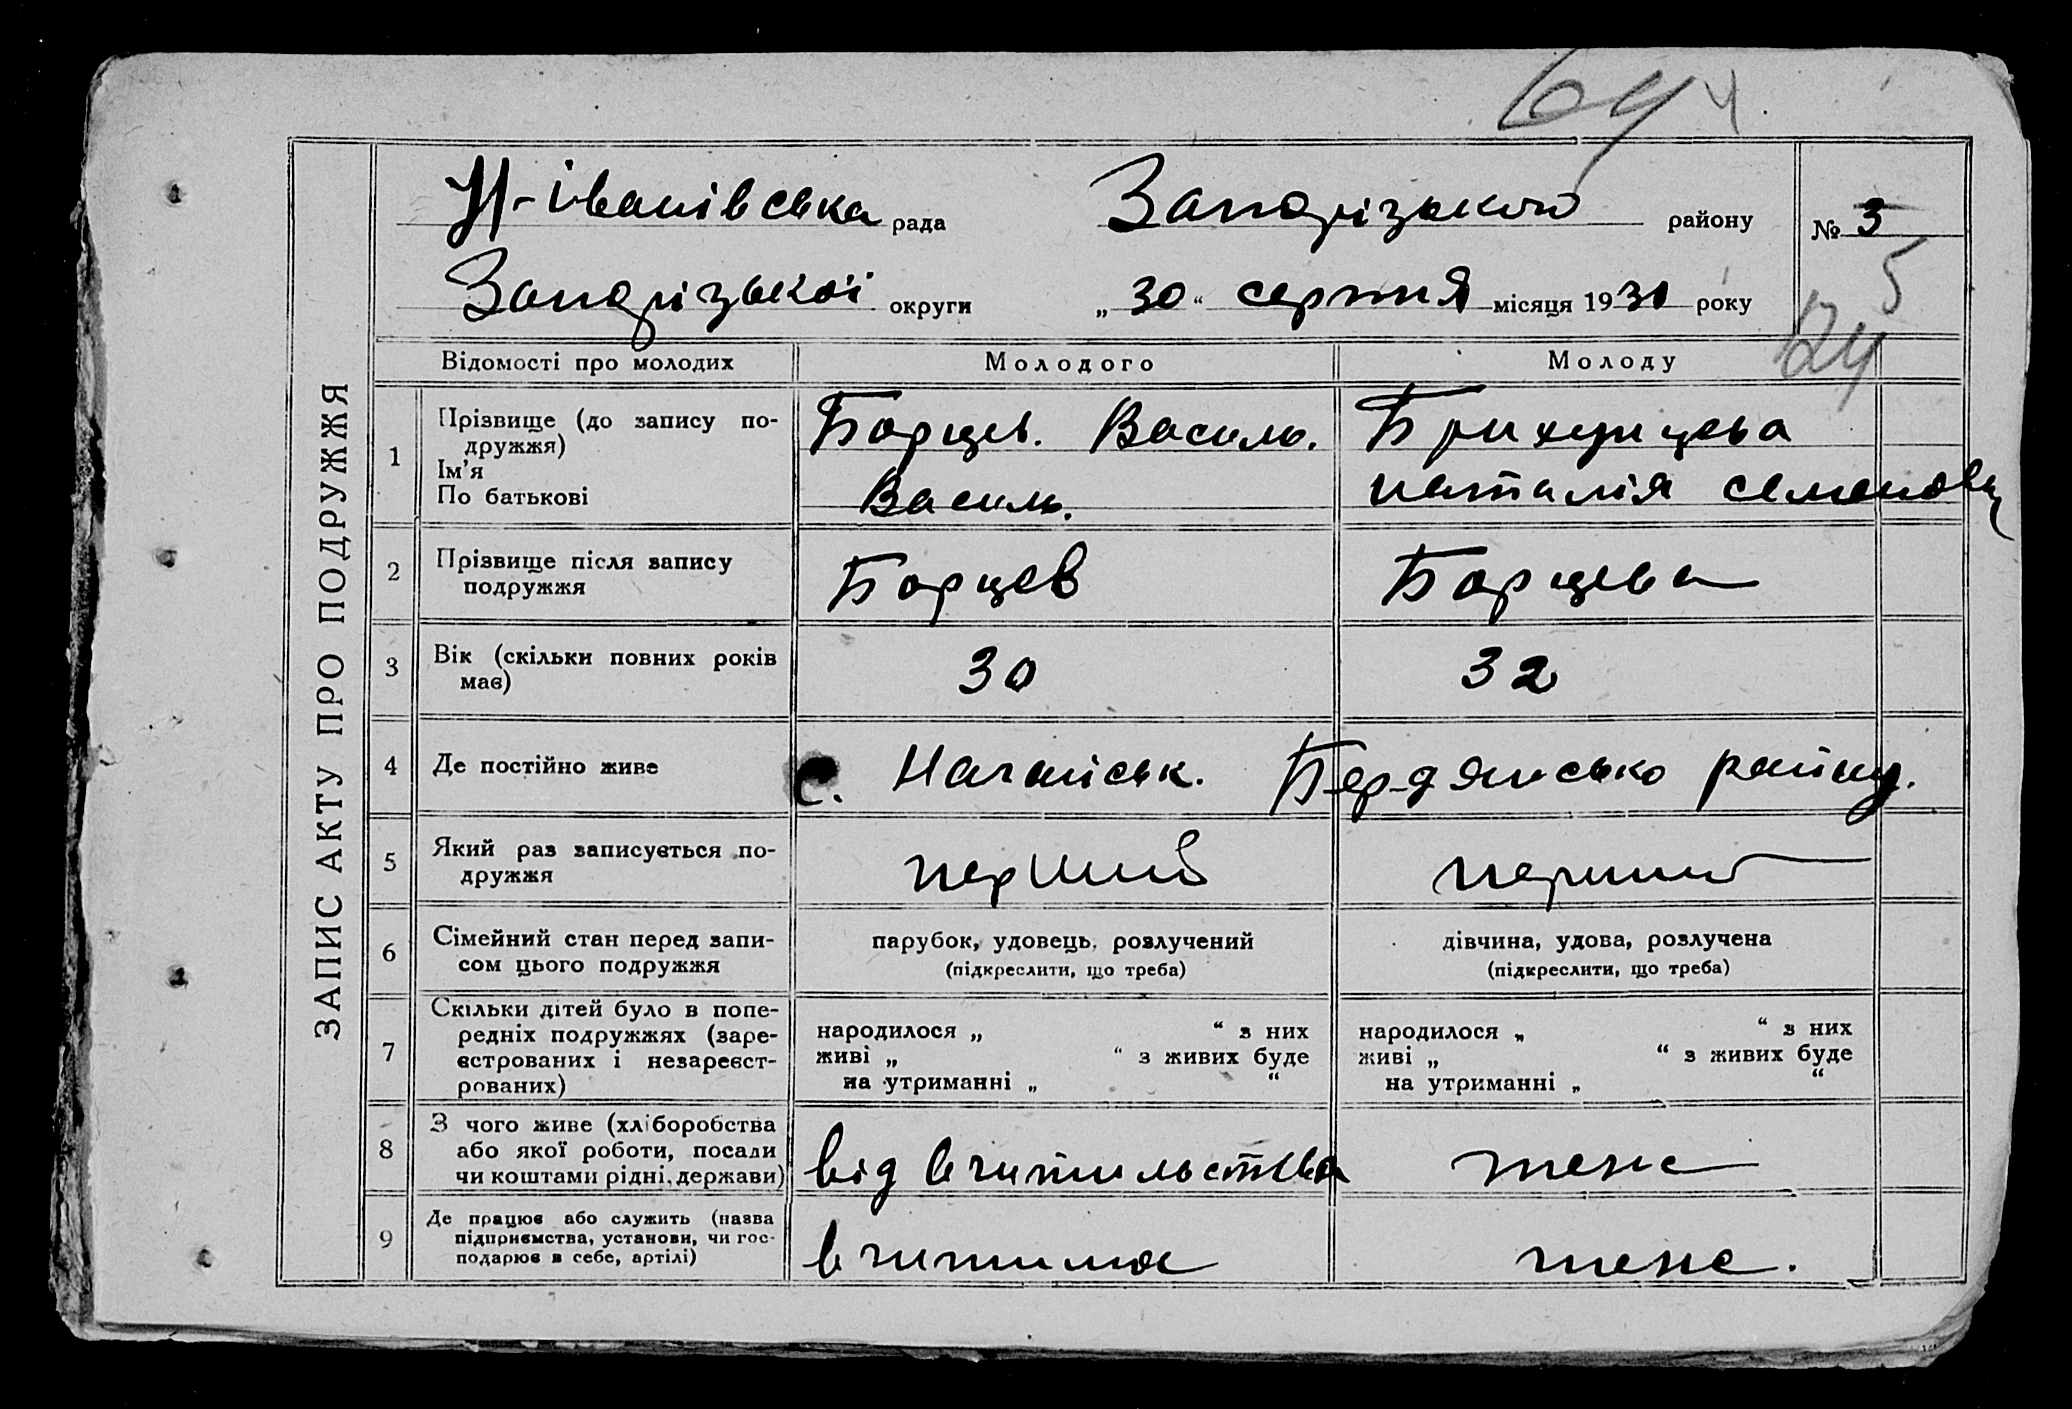 ЗАПИС АКТУ ПРО ПОДРУЖЖЯ
Н-іванівська рада Запорізького району № 3
Запорізької округи „30“ серпня місяця 1930 року
Відомості про молодих Молодого Молоду
1 Прізвище (до запису по-
дружжя)
Ім’я
По батькові
Борцев. Василь.
Василь.
Наталія Семеновн
2 Прізвище після запису
подружжя
Борцев Борцева
3 Вік (скільки повних років
має)
30 32
4 Де постійно живе с. Бердянсько району.
5 Який раз записується по-
дружжя
перший перший
6 Сімейний стан перед запи-
сом цього подружжя
парубок, удовець, розлучений
(підкреслити, що треба)
дівчина, удова, розлучена
(підкреслити, що треба)
7 Скільки дітей було в попе-
редніх подружжях (заре-
єстрованих і незареєст-
рованих)
народилося „ “ з них
живі „ “ з живих буде
на утриманні „ “
народилося „ “ з них
живі „ “ з живих буде
на утриманні „ “
8 З чого живе (хліборобства
або якої роботи, посади
чи коштами рідні, держави)
від вчительства теж
9 Де працює або служить (назва
підприємства, установи, чи гос-
подарює в себе, артілі)
теж.